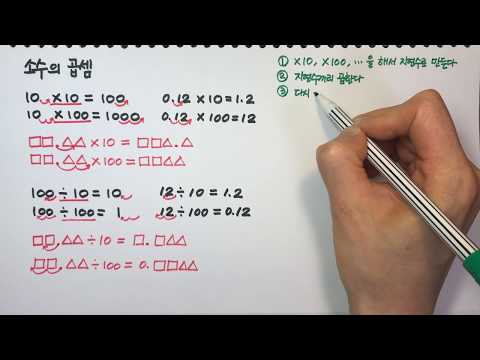 소수의 곱셈
10 × 10 = 100
0.12 × 10 = 1.2
10 × 100 = 1000
0.12 × 100 = 12
□□.△△ × 10 = □□△.△
□□.△△ × 100 = □□△△
100 ÷ 10 = 10
12 ÷ 10 = 1.2
100 ÷ 100 = 1
12 ÷ 100 = 0.12
□□.△△ ÷ 10 = □.□△△
□□.△△ ÷ 100 = 0.□□△△
① ×10, ×100, … 을 해서 자연수로 만든다
② 자연수끼리 곱한다
③ 다시